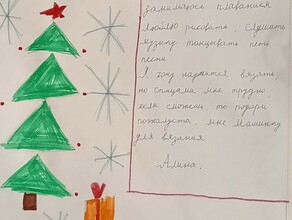 занимаюсь плаванием
люблю рисовать, слушать
музыку танцывать петь
песни
Я хочу научится вязать,
но спицами мне трудно,
если сможешь то подари
пожалуста, мне машинку
для вязания
Алина.